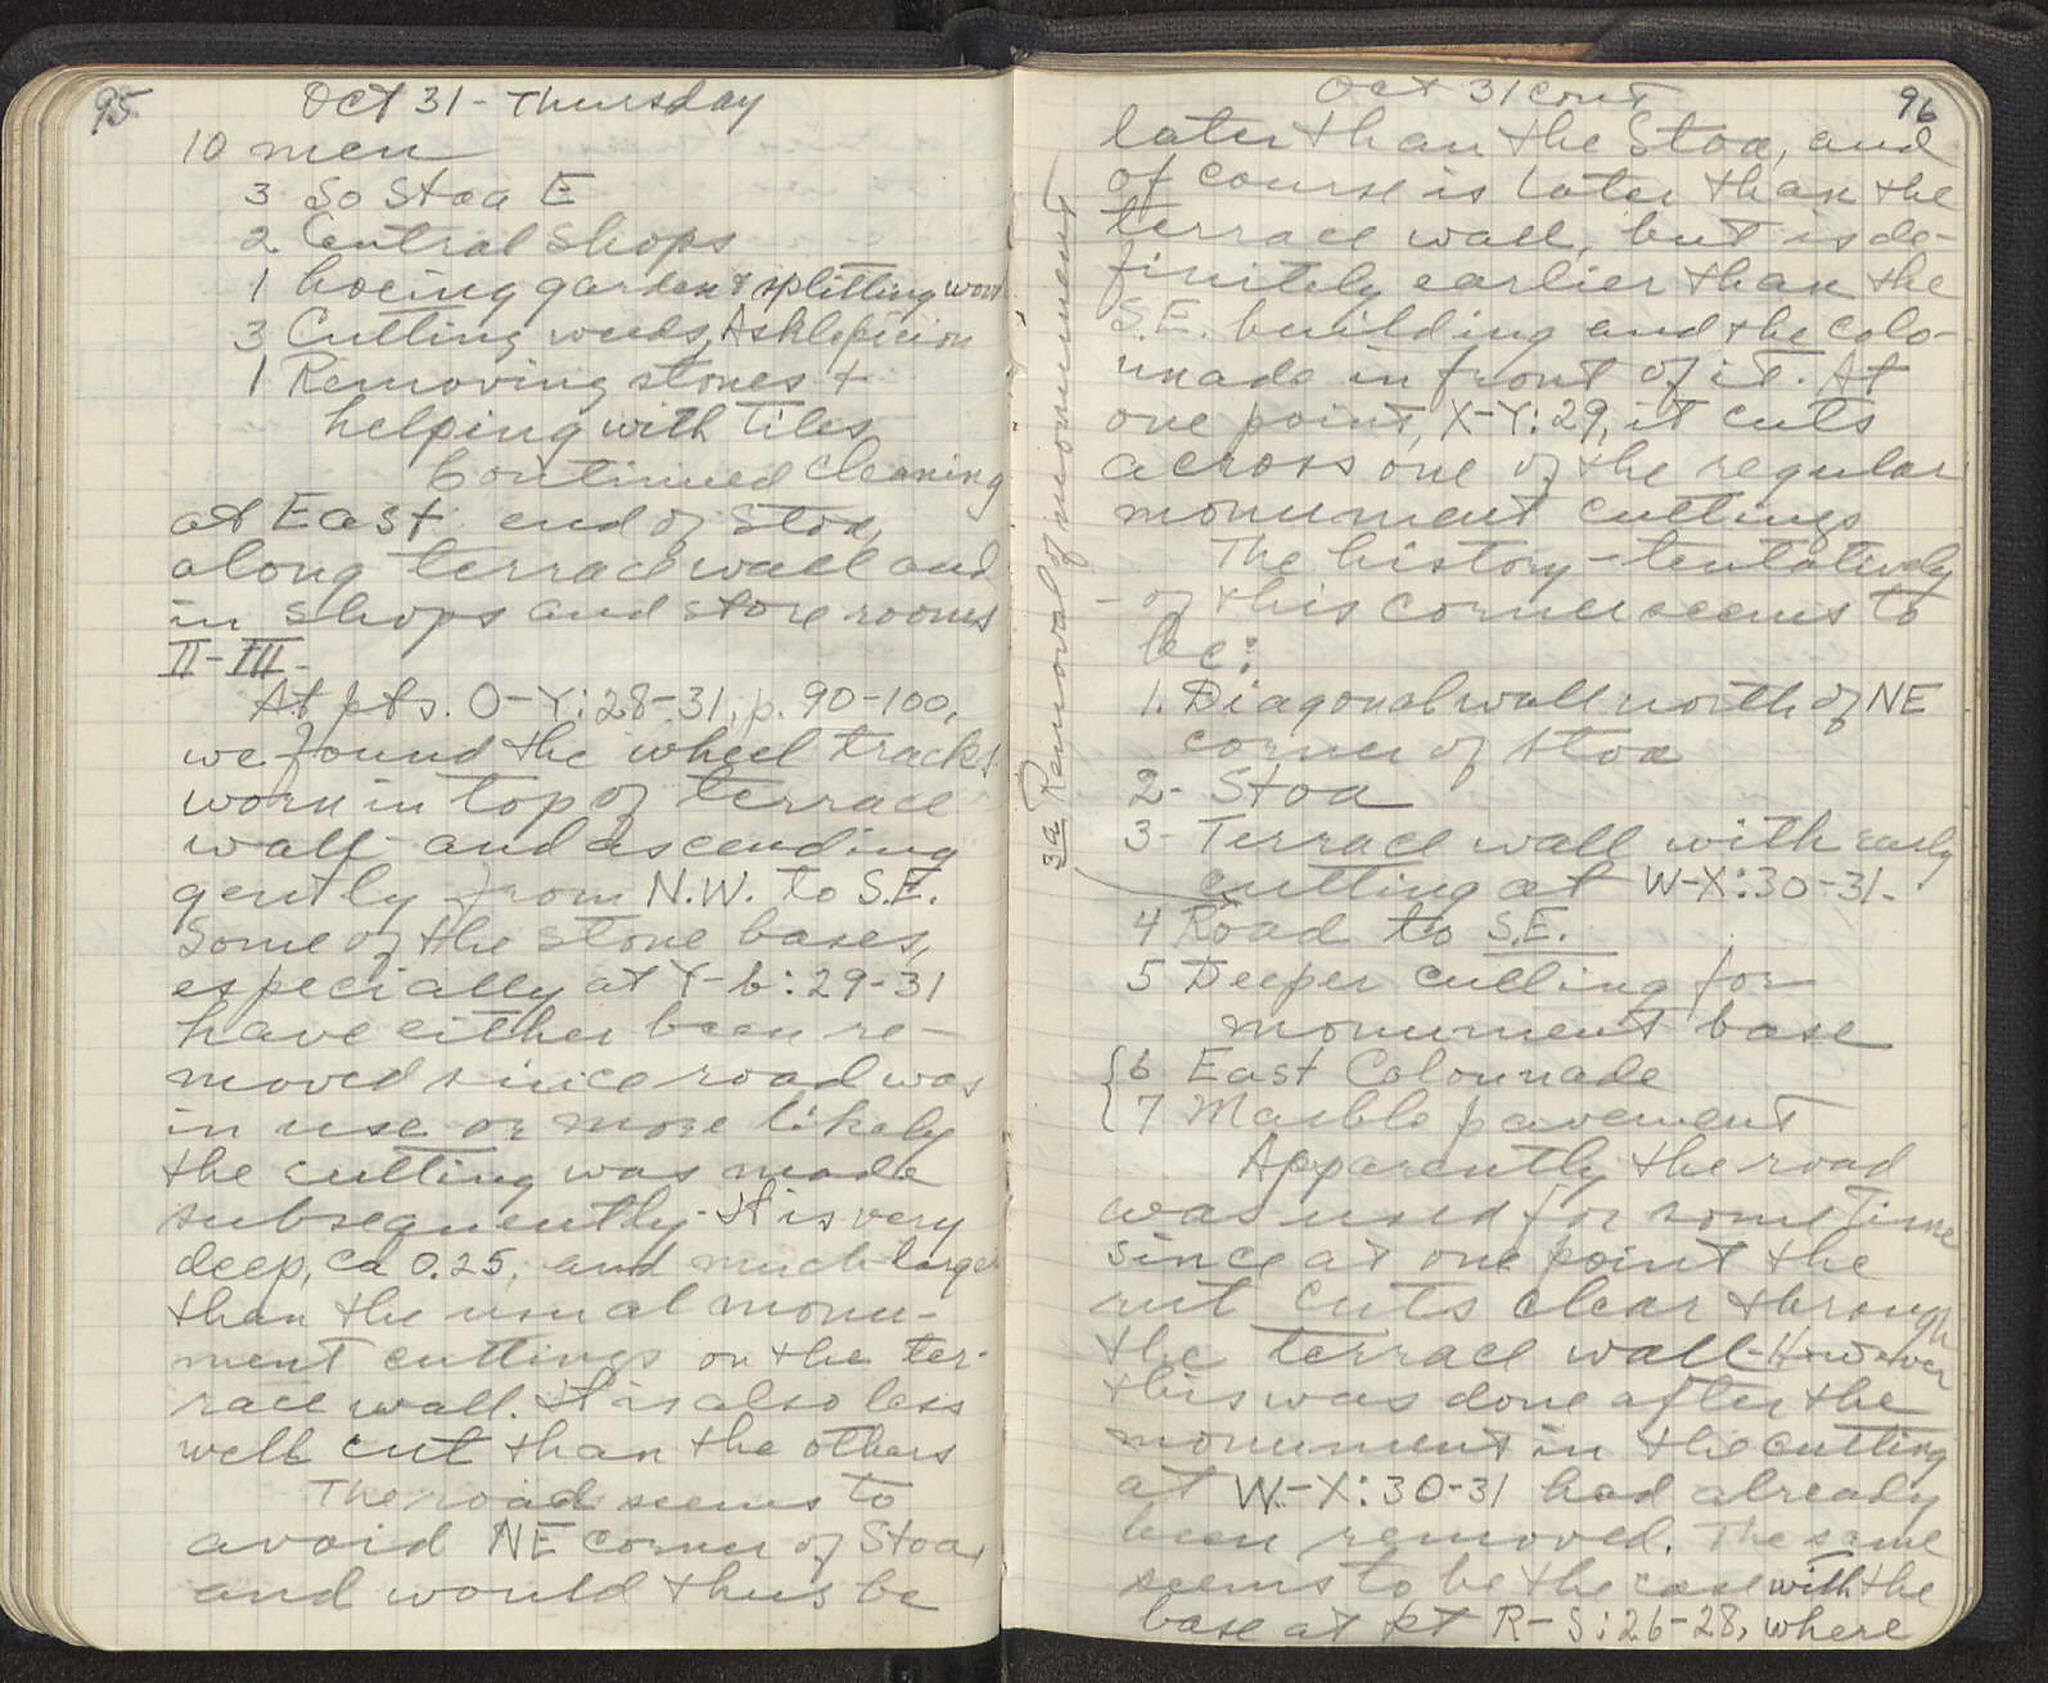 95
Oct 31 - Thursday
10 men
3 So Stoa E
2 Central Shops
1 hoeing garden & splitting wood
3 Cutting weeds, Asklepieion
1 Removing stones +
helping with tiles
Continued cleaning
at East end of Stoa,
along terrace wall and
in shops and store rooms
II-III-
At pts. O-Y:28-31, p. 90-100,
we found the wheel tracks
worn in top of terrace
wall - and ascending
gently from N.W. to S.E.
Some of the stone bases,
especially at Y-b:29-31
have either been re-
moved since road was
in use or more likely
the cutting was made
subsequently - It is very
deep, ca 0.25, and much larger
than the usual monu-
ment cuttings on the ter-
race wall. It is also less
well cut than the others
The road seems to
avoid NE corner of Stoa,
and would thus be
Oct 31 cont
96
later than the Stoa, and
of course is later than the
terrace wall, but is de-
finitely earlier than the
S.E. building and the colo-
nnade in front of it. At
one point, X-Y:29, it cuts
across one of the regular
monument cuttings
The history - tentatively
- of this corner seems to
be:
1. Diagonal wall north of NE
corner of Stoa
2- Stoa
3- Terrace wall with early
cutting at W-X:30-31-
3a Removal of monument
4 Road to S.E.
5 Deeper cutting for
monument base
6 East Colonnade
7 Marble pavement
Apparently the road
was used for some time
since at one point the
rut cuts clear through
the terrace wall - However
this was done after the
monument in the cutting
at W-X:30-31 had already
been removed. The same
seems to be the case with the
base at pt R-S:26-28, where